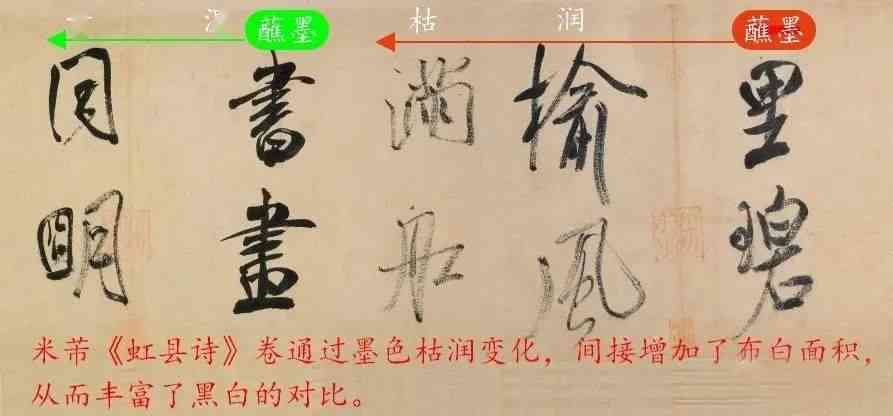 蘸墨 润 枯
蘸墨
里碧
榆風
滿船
書畫
同明
米芾《虹县诗》卷通过墨色枯润变化，间接增加了布白面积，
从而丰富了黑白的对比。